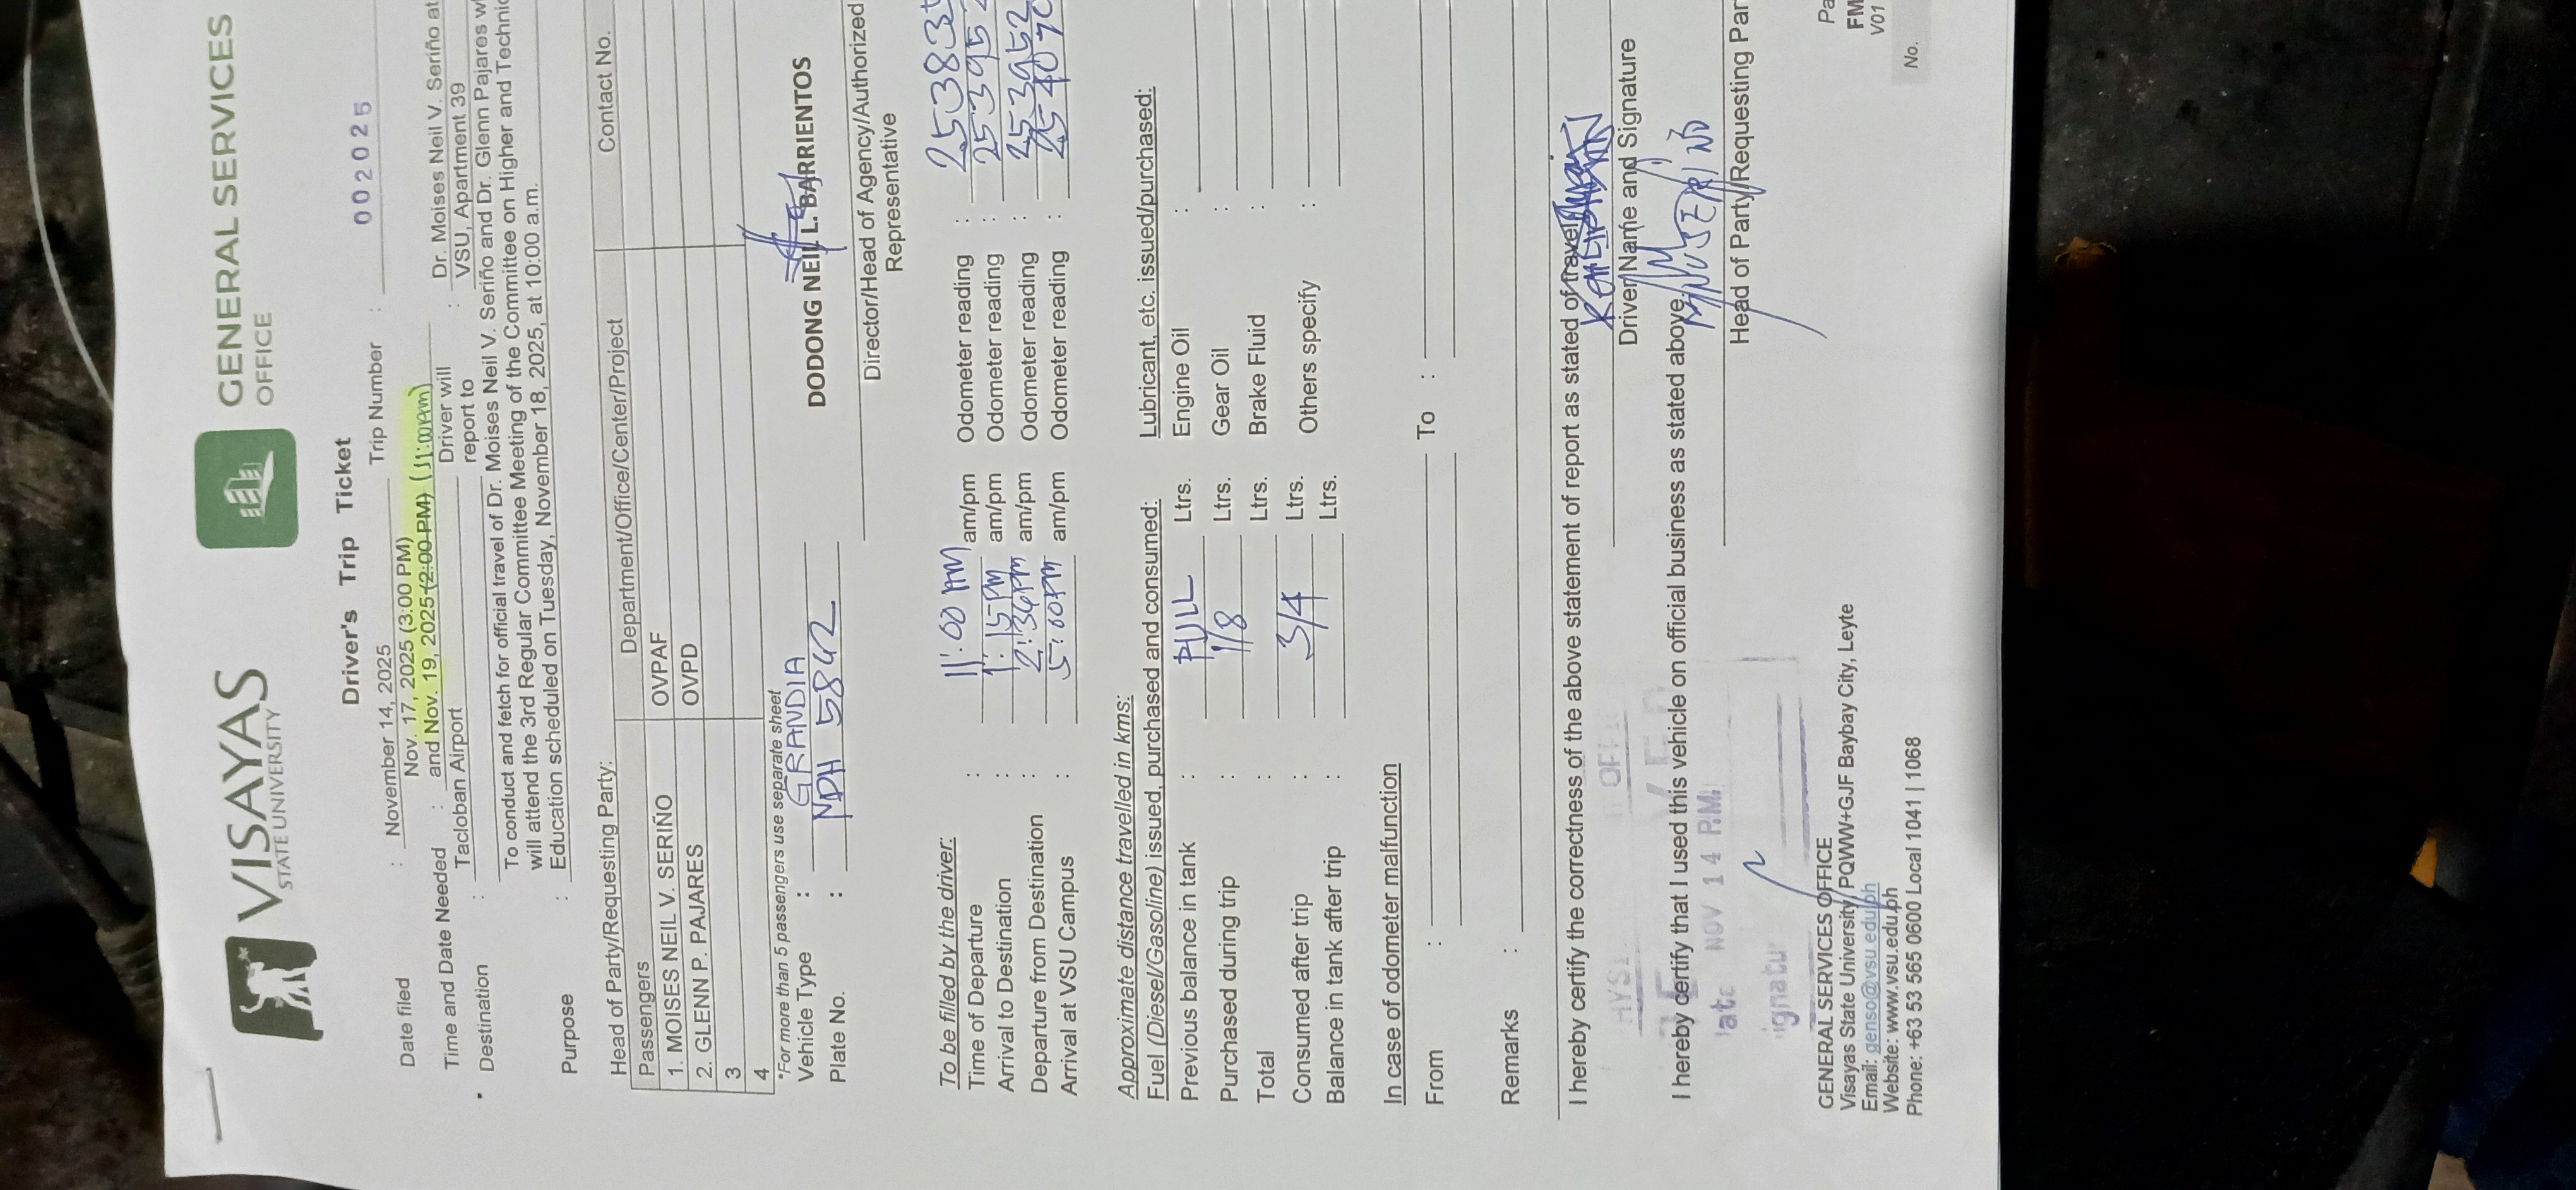 VISAYAS
STATE UNIVERSITY
GENERAL SERVICES
OFFICE
Driver's Trip Ticket
Trip Number : 002025
Date filed : November 14, 2025
Nov. 17, 2025 (3:00 PM)
Time and Date Needed : and Nov. 19, 2025 (2:00 PM) (11:00AM)
Driver will report to : Dr. Moises Neil V. Seriño at
VSU, Apartment 39
Destination : Tacloban Airport
Purpose : To conduct and fetch for official travel of Dr. Moises Neil V. Seriño and Dr. Glenn Pajares w
will attend the 3rd Regular Committee Meeting of the Committee on Higher and Technic
Education scheduled on Tuesday, November 18, 2025, at 10:00 a.m.
Head of Party/Requesting Party:
Passengers Department/Office/Center/Project Contact No.
1. MOISES NEIL V. SERIÑO OVPAF
2. GLENN P. PAJARES OVPD
3
4
*For more than 5 passengers use separate sheet
Vehicle Type : GRANDIA
Plate No. : NDH 5842
DODONG NEIL L. BARRIENTOS
Director/Head of Agency/Authorized
Representative
To be filled by the driver:
Time of Departure : 11:00 AM am/pm Odometer reading : 253835
Arrival to Destination : 1:15PM am/pm Odometer reading : 253952
Departure from Destination : 2:36PM am/pm Odometer reading : 253952
Arrival at VSU Campus : 5:00PM am/pm Odometer reading : 254070
Approximate distance travelled in kms:
Fuel (Diesel/Gasoline) issued, purchased and consumed: Lubricant, etc. issued/purchased:
Previous balance in tank : FULL Ltrs. Engine Oil :
Purchased during trip : 1/8 Ltrs. Gear Oil :
Total : Ltrs. Brake Fluid :
Consumed after trip : 3/4 Ltrs. Others specify :
Balance in tank after trip : Ltrs.
In case of odometer malfunction
From : To :
Remarks :
I hereby certify the correctness of the above statement of report as stated of travel
Driver Name and Signature
I hereby certify that I used this vehicle on official business as stated above.
MNVSERINO
Head of Party/Requesting Par
NOV 14 P.M.
GENERAL SERVICES OFFICE
Visayas State University PQWW+GJF Baybay City, Leyte
Email: genso@vsu.edu.ph
Website: www.vsu.edu.ph
Phone: +63 53 565 0600 Local 1041 | 1068
Pa
FM
V01
No.